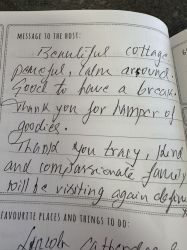 MESSAGE TO THE HOST:
Beautiful cottage
peaceful, calm around.
Good to have a break.
Thank you for hamper of
goodies.
Thank you tracy, kind
and compassionate family
will be visiting again
FAVOURITE PLACES AND THINGS TO DO:
Lincoln Cathedral